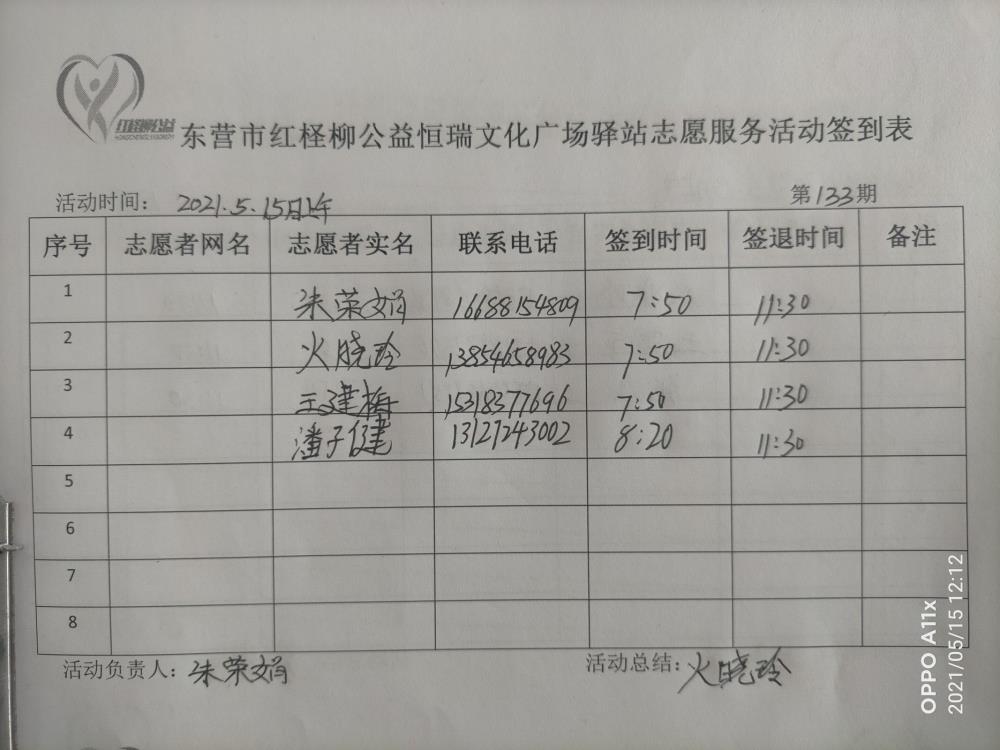 红柽柳公益
东营市红柽柳公益恒瑞文化广场驿站志愿服务活动签到表
活动时间: 2021.5.15日上午 第133期
序号 志愿者网名 志愿者实名 联系电话 签到时间 签退时间 备注
1 朱荣娟 16688154809 7:50 11:30
2 火晓玲 13854658983 7:50 11:30
3 王建梅 15318377696 7:50 11:30
4 潘子健 13127243002 8:20 11:30
5
6
7
8
活动负责人: 朱荣娟 活动总结: 火晓玲
OPPO A11x
2021/05/15 12:12